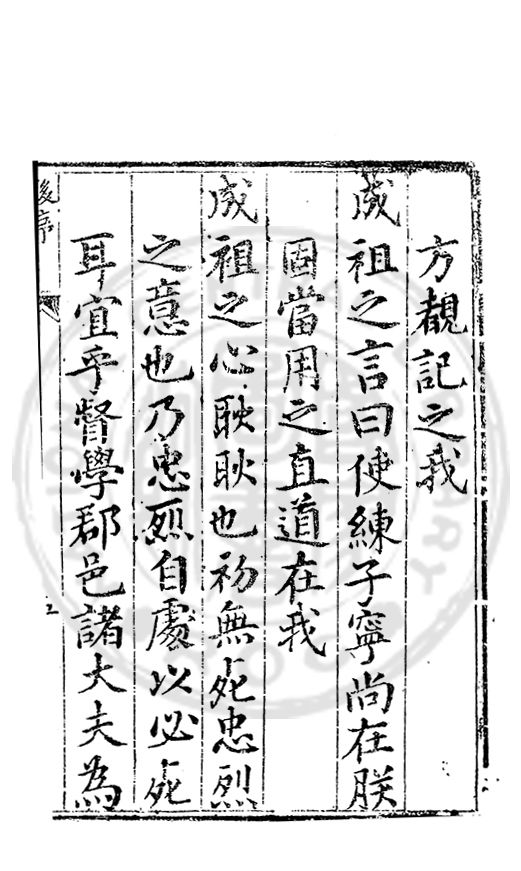 方覩記之我
成祖之言曰使練子寧尚在朕
固當用之直道在我
成祖之心耿耿也初無死忠烈
之意也乃忠烈自處以必死
耳宜乎督學郡邑諸大夫為
後序